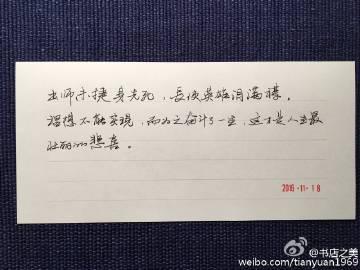 出师未捷身先死，長使英雄泪满襟。
理想不能实现，而为之奋斗了一生，这才是人生最
壮丽的悲喜。
2016-11-18
@书店之美
weibo.com/tianyuan1969